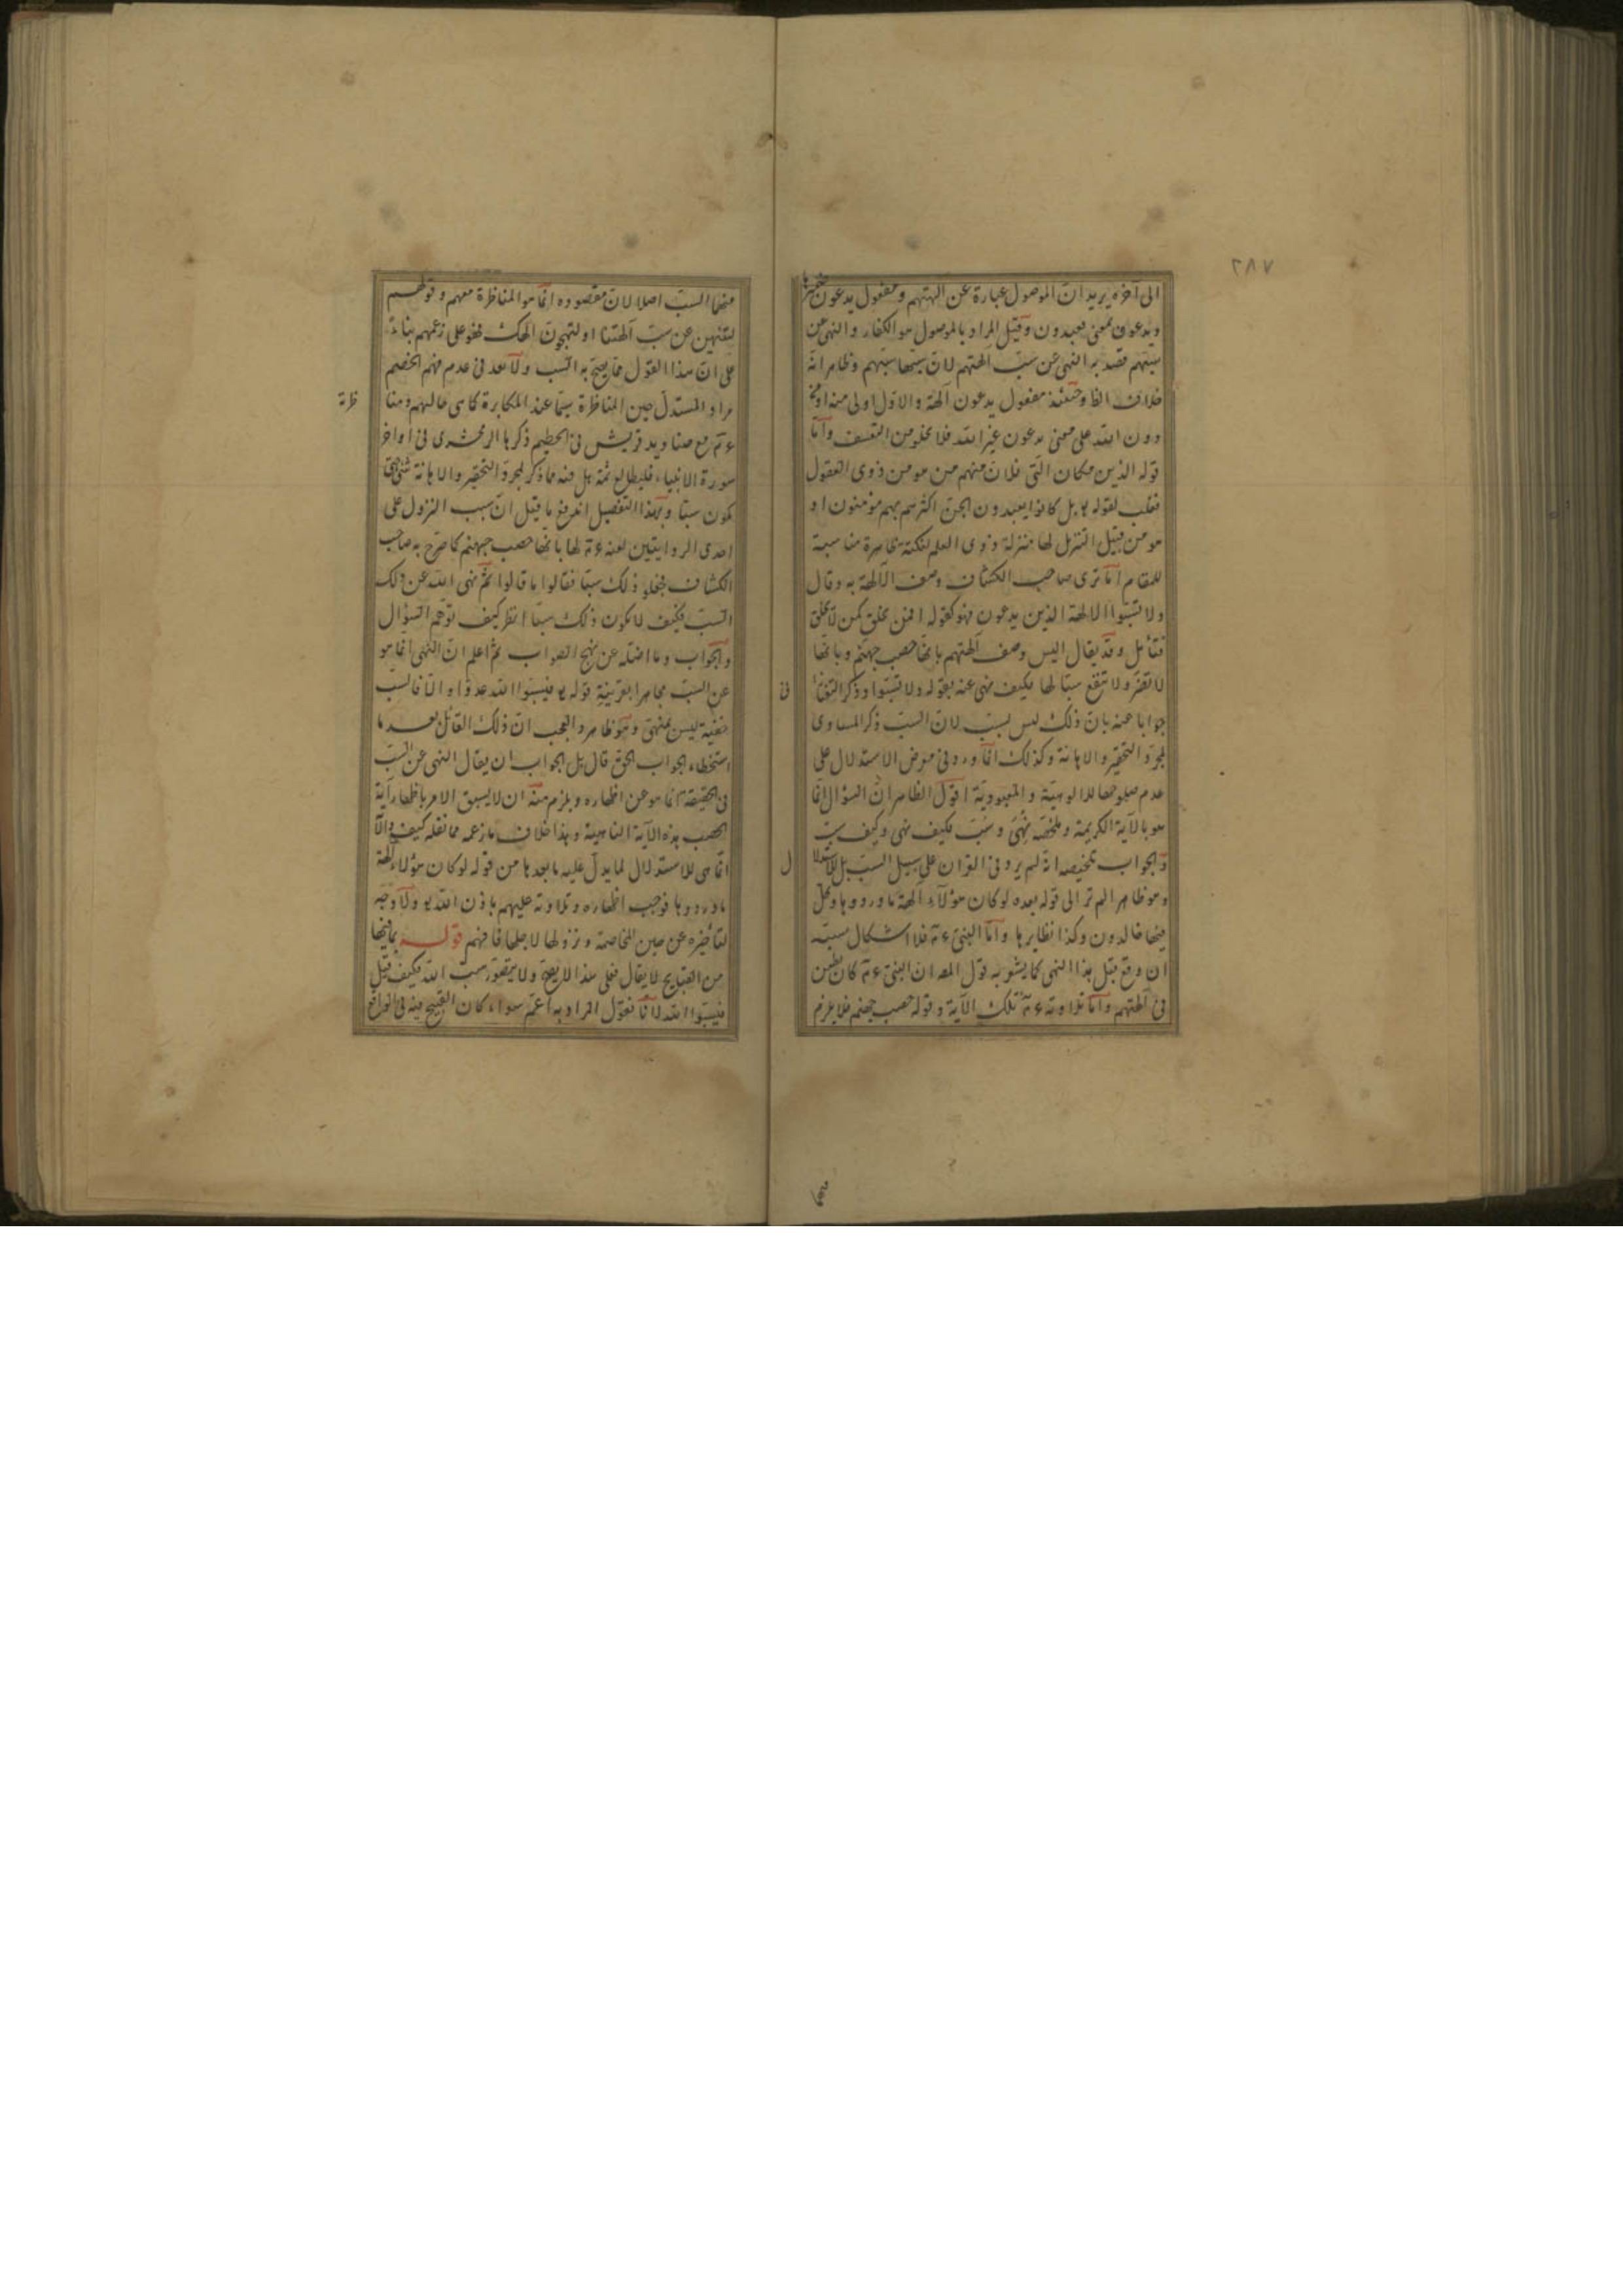 ٢٨٧
الى آخره يريد ان الموصول عبارة عن الهتهم ومفعول يدعون ضميرها
ويدعون بمعنى يعبدون وقيل المراد بالموصول هو الكفار والنهى عن
سبهم قصد به النهى عن سب الهتهم لان سبها سبهم وظاهر انه
خلاف الظ وحينئذ مفعول يدعون آلهة والاول اولى منه
دون الله على معنى يدعون غير الله فلا يخلو من التعسف واما
قوله الذين مكان التى فلان منهم من هو من ذوى العقول
فغلب لقوله تع بل كانوا يعبدون الجن اكثرهم بهم مؤمنون او
هو من قبيل التنزيل لها منزلة ذوى العلم لنكتة ظاهرة مناسبة
للمقام اما ترى صاحب الكشاف وصف الآلهة به وقال
ولا تسبوا الالهة الذين يدعون فهو كقوله افمن يخلق كمن لا يخلق
فتأمل وقد يقال اليس وصف آلهتهم بانها حصب جهنم وبانها
لا تضر ولا تنفع سبا لها فكيف نهى عنه بقوله ولا تسبوا وذكر التفتازا
نى
جوابا عنه بان ذلك ليس بسب لان السب ذكر المساوى
لمجرد التحقير والاهانة وكذلك انما ورد فى معرض الاستدلال على
عدم صلوحها للالوهية والمعبودية اقول الظاهر ان السؤال انما
هو بالآية الكريمة وملخصه نهى وسب فكيف نهى وكيف سب
والجواب تلخيصه انه لم يرد فى القران على سبيل السب بل للاستدلا
ل
وهو ظاهر الم تر الى قوله بعده لو كان هؤلاء آلهة ما وردوها وكل
فيها خالدون وكذا نظايرها واما النبى ءم فلا اشكال سبه
ان وقع قبل هذا النهى كما يشعر به قول المص ان النبى ءم كان يطعن
فى آلهتهم واما تلاوته ءم تلك الآية وقوله حصب جهنم فلا يلزم
منها السب اصلا لان مقصوده انما هو المناظرة معهم وقولهم
لتنتهين عن سب آلهتنا او لنهجون الهك فهو على زعمهم بناء
على ان هذا القول مما يصح به السب ولا بعد فى عدم فهم الخصم
مراد المستدل حين المناظرة سيما عند المكابرة كما هى حالهم ومنا
ظرته
ءم مع صناديد قريش فى الحطيم ذكرها الزمخشرى فى اواخر
سورة الانبياء فليطالع ثمة بل فيه ما ذكر لمجرد التحقير والاهانة
يكون سبا وبهذا التفصيل اندفع ما قيل ان سبب النزول على
احدى الروايتين لعنه ءم لها بانها حصب جهنم كما صرح به صاحب
الكشاف فجعلو ذلك سبا فقالوا ما قالوا ثم نهى الله عن ذلك
السب فكيف لا يكون ذلك سبا انظر كيف توهم السؤال
والجواب وما اضله عن نهج الصواب ثم اعلم ان النهى انما هو
عن السب مجاهرا بقرينة قوله تع فيسبوا الله عدوا والا فالسب
خفية ليس بمنهى وهو ظاهر والعجب ان ذلك القائل بعد ما
استخطاء الجواب الحق قال بل الجواب ان يقال النهى عن السب
فى الحقيقة انما هو عن اظهاره ويلزم منه ان لا يسبق الامر باظهار آية
الحصب هذه الآية الناهية وهذا خلاف ما زعمه مما نقله كيف والآ
انما هى للاستدلال لما يدل عليه ما بعدها من قوله لو كان هؤلاء آلهة
ما وردوها فوجب اظهاره وتلاوته عليهم باذن الله تع ولا وجه
لتأخيره عن حين المخاصمة ونزولها لاجلها فافهم قوله بما فيها
من القبايح لا يقال فعلى هذا لا يصح ولا يتصور سب الله فكيف قيل
فيسبوا الله لانا نقول المراد به اعم سواء كان القبيح فيه فى الواقع